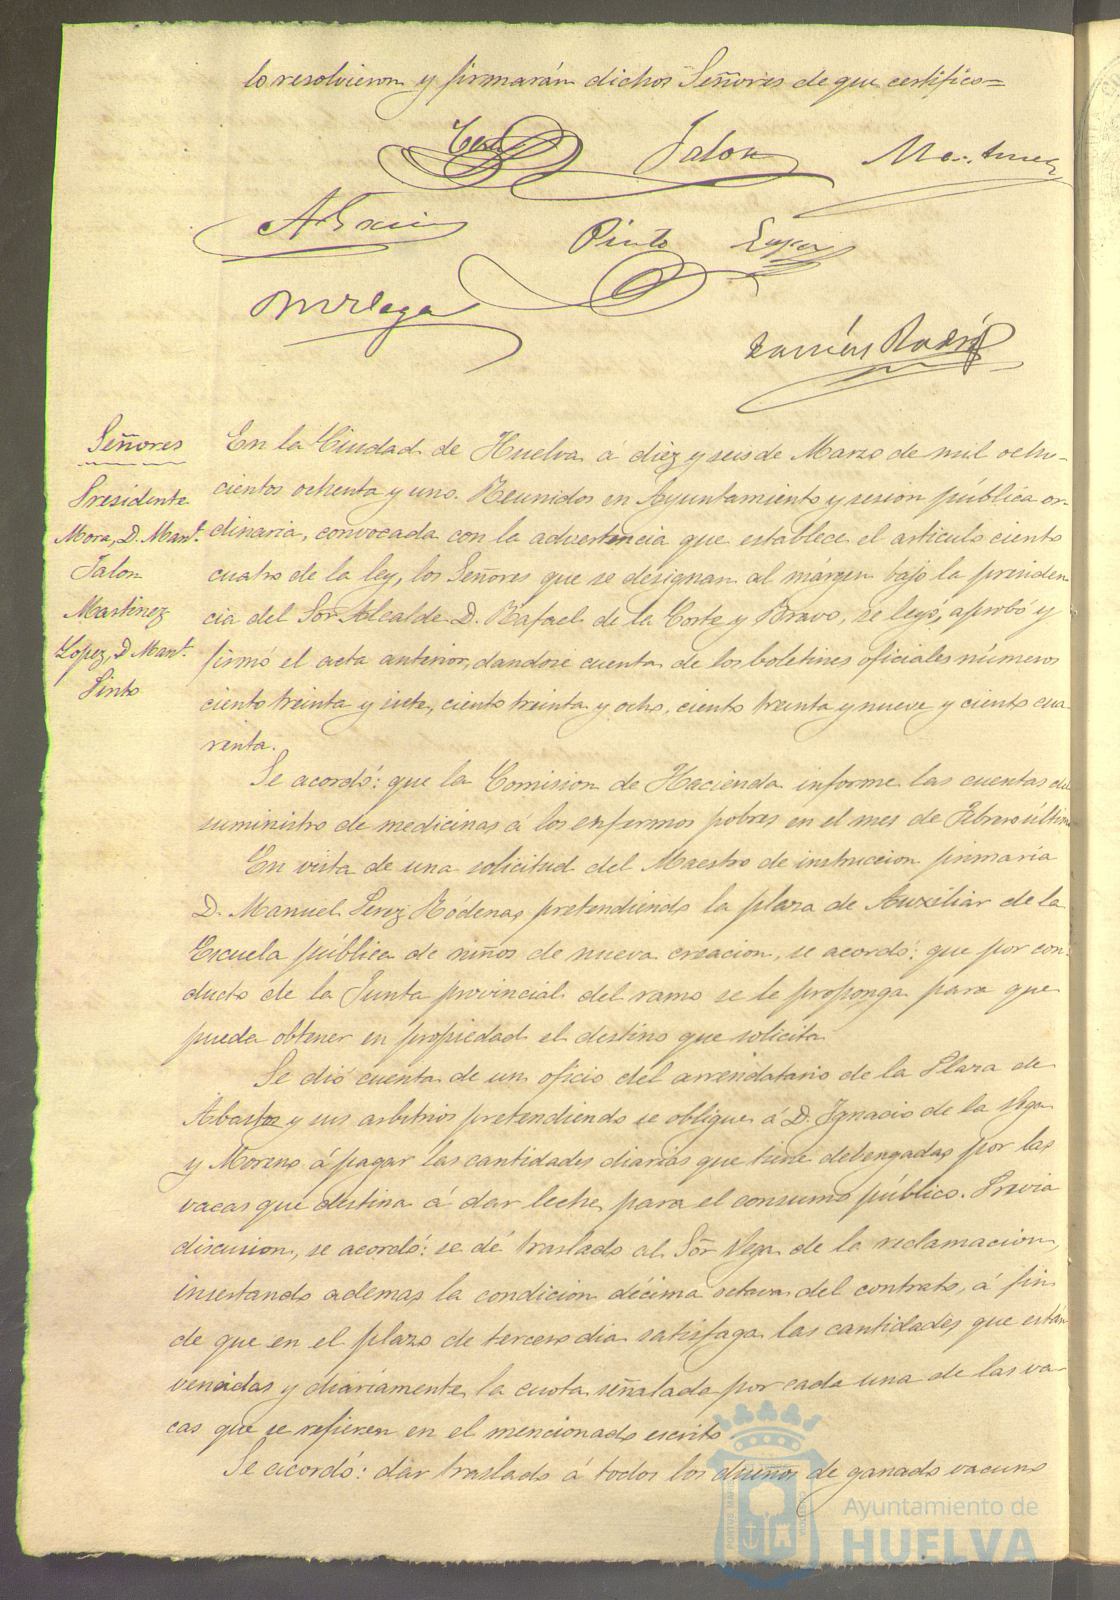 lo resolvieron y firmarán dichos Señores de que certifico=
Jalon
Pinto Lopez
Ramón Rodrí
Señores
Presidente
Mora, D. Manl.
Jalon
Martinez
Lopez, D Manl.
Pinto
En la Ciudad de Huelva á diez y seis de Marzo de mil ocho-
cientos ochenta y uno. Reunidos en Ayuntamiento y sesión pública or-
dinaria, convocada con la advertencia que establece el articulo ciento
cuatro de la ley, los Señores que se designan al márgen bajo la presiden
cia del Sor Alcalde D. Rafael de la Corte y Bravo, se leyó, aprobó y
firmó el acta anterior, dandose cuenta de los boletines oficiales números
ciento treinta y siete, ciento treinta y ocho, ciento treinta y nueve y ciento cua-
renta.
Se acordó: que la Comision de Hacienda informe las cuentas del
suministro de medicinas á los enfermos pobres en el mes de Febrero último
En vista de una solicitud del Maestro de instruccion primaria
D. Manuel Perez Ródenas pretendiendo la plaza de Auxiliar de la
Escuela pública de niños de nueva creacion, se acordó: que por con-
ducto de la Junta provincial del ramo se le proponga para que
pueda obtener en propiedad el destino que solicita
Se dió cuenta de un oficio del arrendatario de la Plaza de
Abastos y sus arbitrios pretendiendo se obligue á D. Ignacio de la Vega
y Moreno á pagar las cantidades diarias que tiene debengadas por las
vacas que destina á dar leche para el consumo público. Previa
discusion, se acordó: se dé traslado al Sõr Vega de la reclamacion,
insertando ademas la condicion décima octava del contrato, á fin
de que en el plazo de tercero dia satisfaga las cantidades que están
vencidas y diariamente la cuota señalada por cada una de las va-
cas que se refieren en el mencionado escrito
Se acordó: dar traslado á todos los dueños de ganado vacuno
Ayuntamiento de
HUELVA